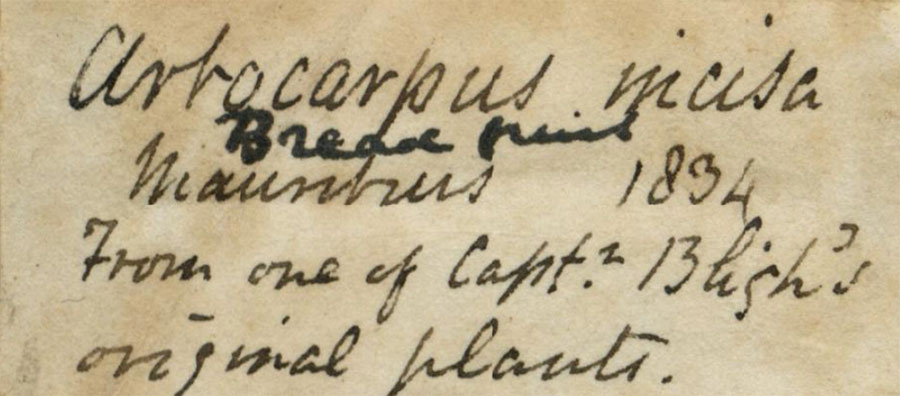 Artocarpus incisa
Bread fruit
Mauritius 1834
From one of Capt.n Bligh's
original plants.